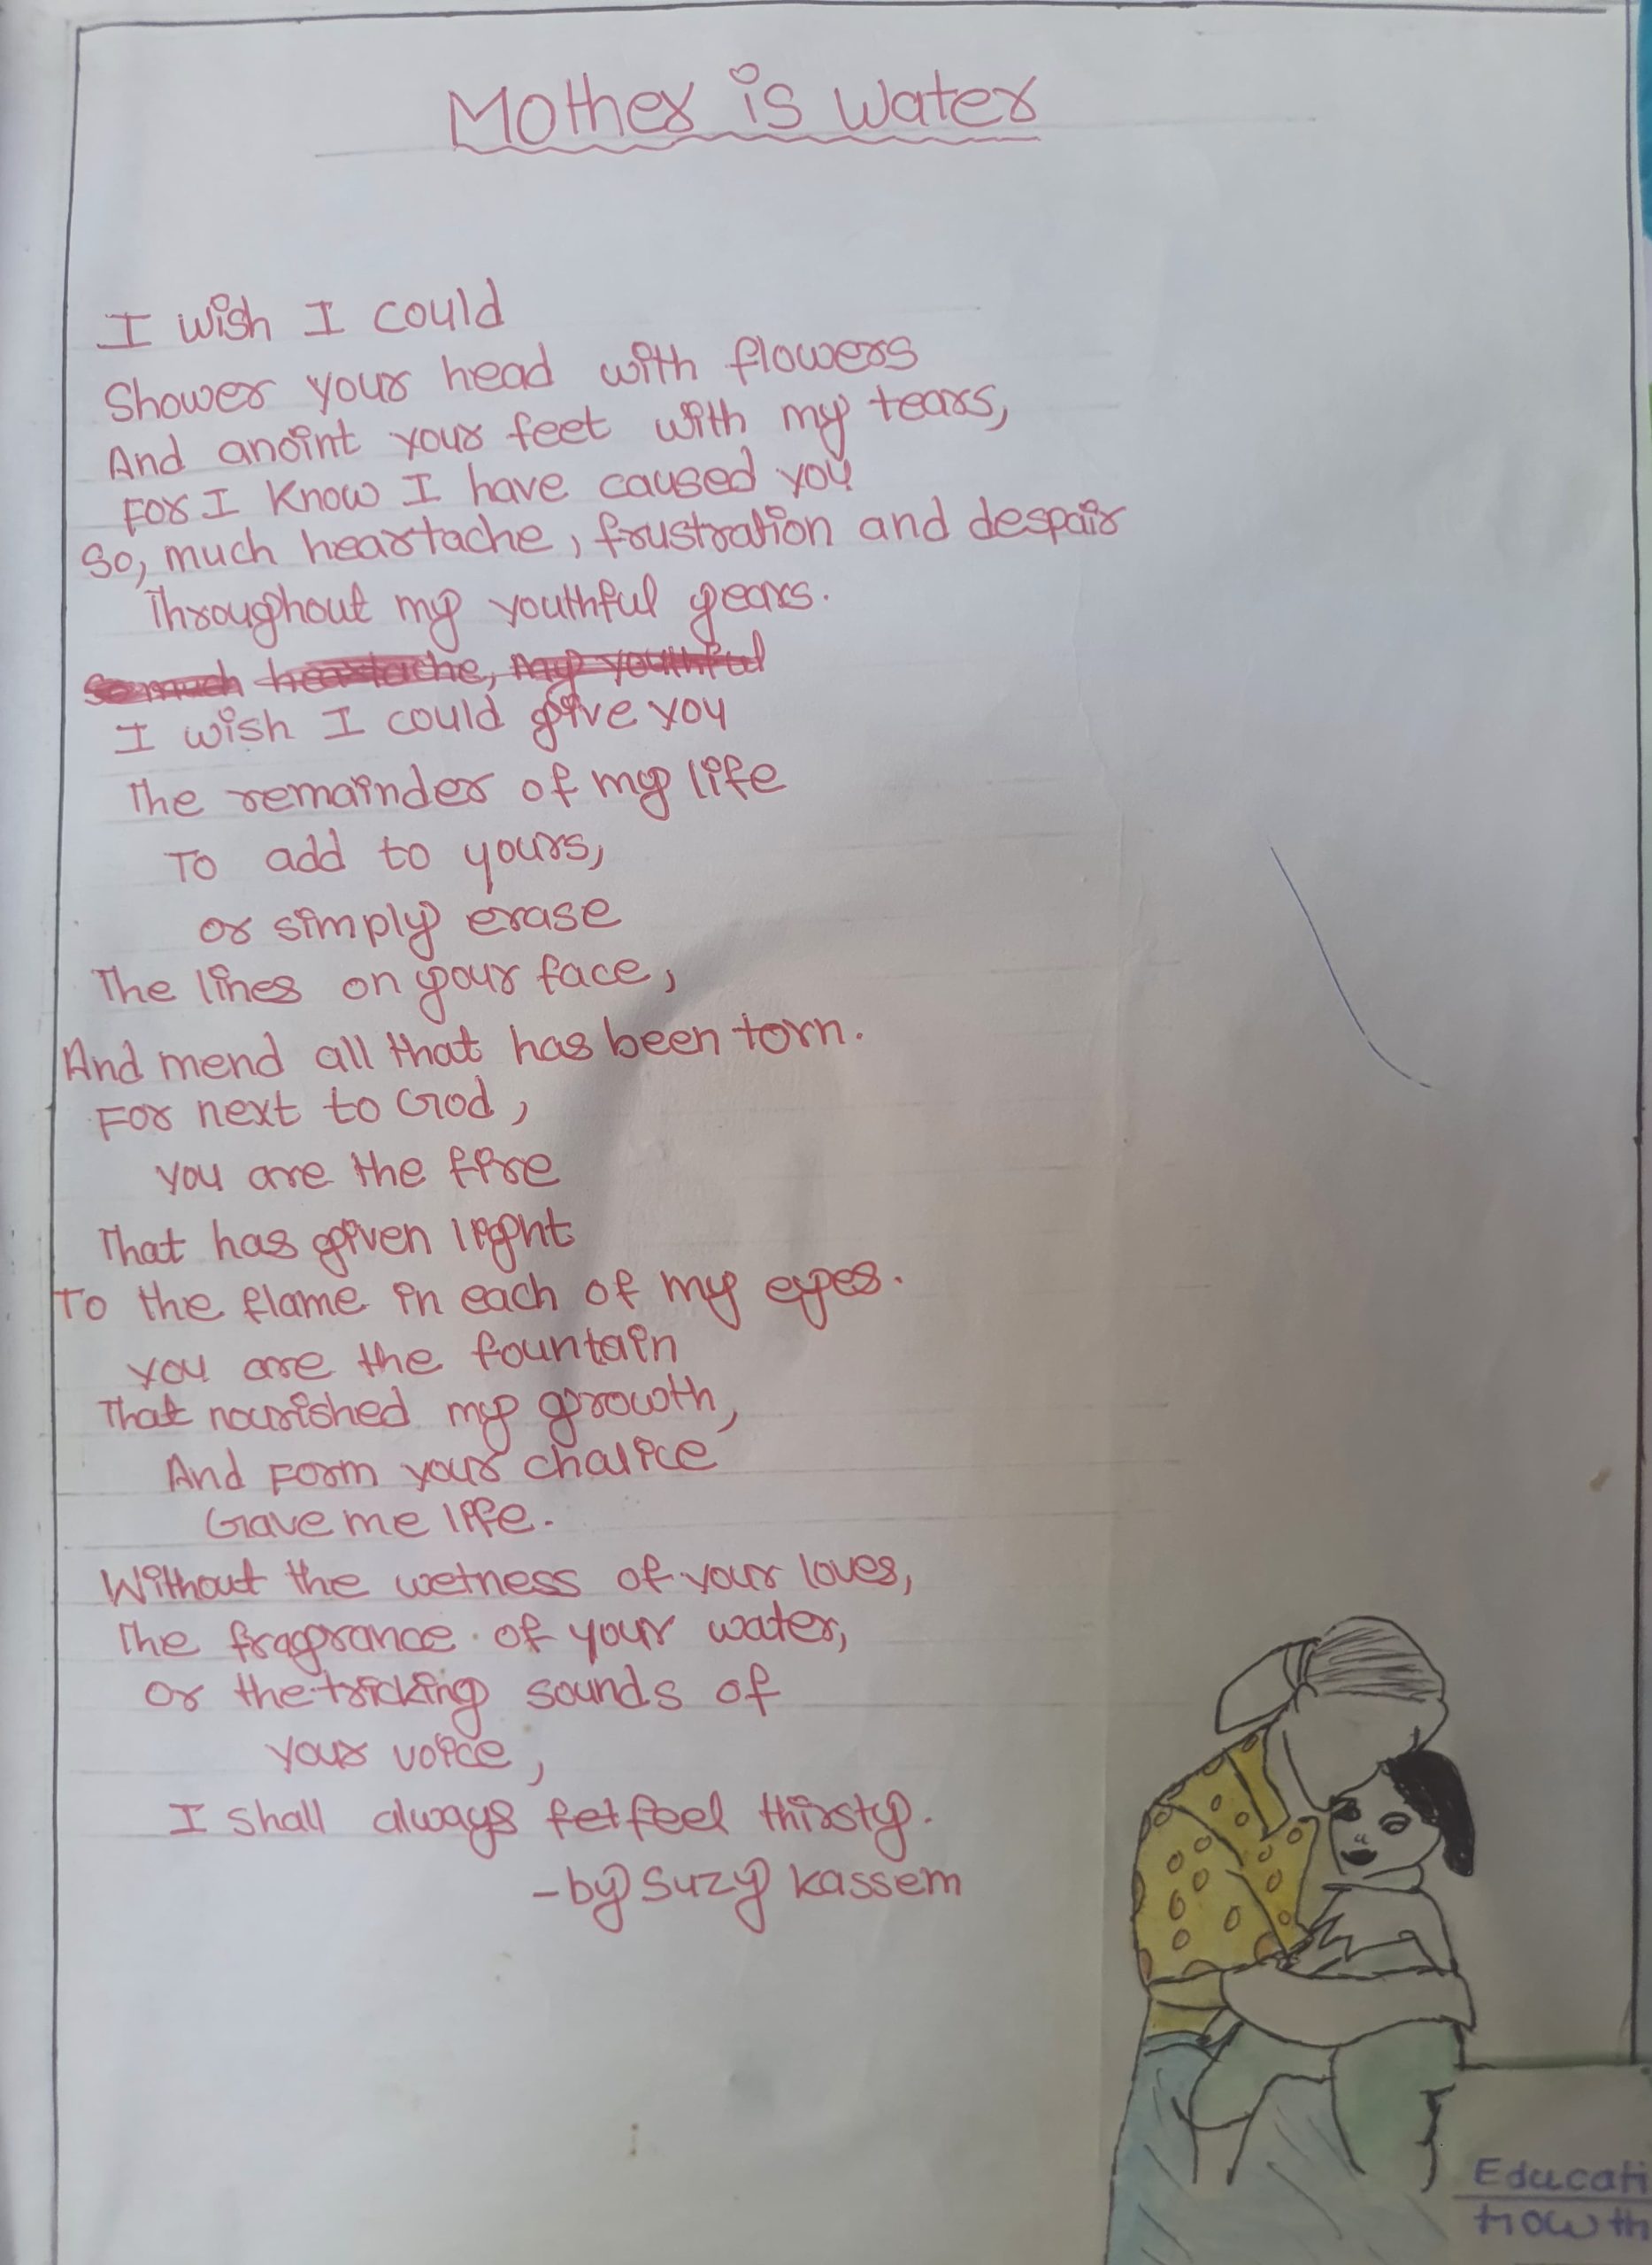 Mother is water
I wish I could
Shower your head with flowers
And anoint your feet with my tears,
For I Know I have caused you
So, much heartache, frustration and despair
Throughout my youthful years.
So much heartache, my youthful
I wish I could give you
The remainder of my life
To add to yours,
or simply erase
The lines on your face,
And mend all that has been torn.
For next to God,
you are the fire
That has given light
To the flame in each of my eyes.
you are the fountain
That nourished my growth,
And Form your chalice
Gave me life.
Without the wetness of your loves,
The fragrance of your water,
Or the tricking sounds of
your voice,
I shall always fet feel thirsty.
- by Suzy Kassem
Educati